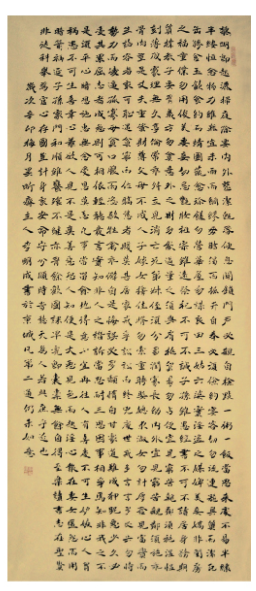 黎明即起灑掃庭除要內外整潔既昏便息關鎖門戶必親自檢點一粥一飯當思來處不易半絲
半縷恆念物力維艱宜未雨而綢繆毋臨渴而掘井自奉必須儉約宴客切勿流連器具質而潔瓦
缶勝金玉飲食約而精園蔬愈珍饈勿營華屋勿謀良田三姑六婆實淫盜之媒婢美妾嬌非閨房
之福童僕勿用俊美妻妾切忌艷妝祖宗雖遠祭祀不可不誠子孫雖愚經書不可不讀居身務期
質樸教子要有義方勿貪意外之財勿飲過量之酒與肩挑貿易勿占便宜見窮苦親鄰須加溫恤
刻薄成家理無久享倫常乖舛立見消亡兄弟叔姪須分多潤寡長幼內外宜法肅辭嚴聽婦言乖
骨肉豈是丈夫重資財薄父母不成人子嫁女擇佳婿勿索重聘娶媳求淑女勿計厚奩見富貴而
生諂容者最可恥遇貧窮而作驕態者賤莫甚居家戒爭訟訟則終凶處世戒多言言多必失勿恃
勢力而凌逼孤寡毋貪口腹而恣殺牲禽乖僻自是悔誤必多頹惰自甘家道難成狎昵惡少久必受
其累屈志老成急則可相依輕聽發言安知非人之譖訴當忍耐三思因事相爭焉知非我之不
是須平心暗想施惠無念受恩莫忘凡事當留餘地得意不宜再往人有喜慶不可生妒嫉心人有
禍患不可生喜幸心善欲人見不是真善惡恐人知便是大惡見色而起淫心報在妻女匿怨而用
暗箭禍延子孫家門和順雖饔飧不繼亦有餘歡國課早完即囊橐無餘自得至樂讀書志在聖賢
非徒科第為官心存君國豈計身家守分安命順時聽天為人若此庶乎近焉
歲次辛卯梅月主人李明成書於京城